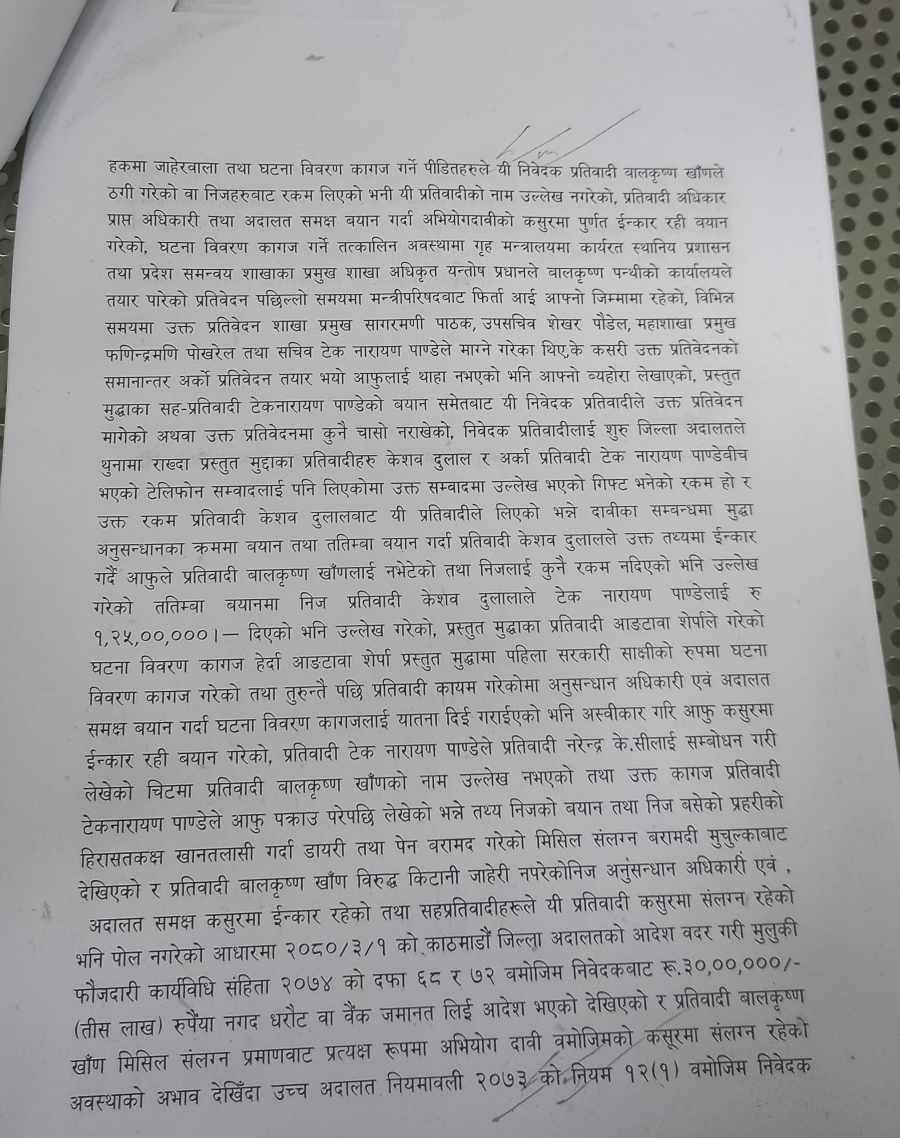 हकमा जाहेरवाला तथा घटना विवरण कागज गर्ने पीडितहरुले यी निवेदक प्रतिवादी वालकृष्ण खाँणले
ठगी गरेको वा निजहरुबाट रकम लिएको भनी यी प्रतिवादीको नाम उल्लेख नगरेको, प्रतिवादी अधिकार
प्राप्त अधिकारी तथा अदालत समक्ष बयान गर्दा अभियोगदावीको कसुरमा पुर्णत ईन्कार रही वयान
गरेको, घटना विवरण कागज गर्ने तत्कालिन अवस्थामा गृह मन्त्रालयमा कार्यरत स्थानिय प्रशासन
तथा प्रदेश समन्वय शाखाका प्रमुख शाखा अधिकृत यन्तोष प्रधानले वालकृष्ण पन्थीको कार्यालयले
तयार पारेको प्रतिवेदन पछिल्लो समयमा मन्त्रीपरिषदबाट फिर्ता आई आफ्नो जिम्मामा रहेको, विभिन्न
समयमा उक्त प्रतिवेदन शाखा प्रमुख सागरमणी पाठक, उपसचिव शेखर पौडेल, महाशाखा प्रमुख
फणिन्द्रमणि पोखरेल तथा सचिव टेक नारायण पाण्डेले माग्ने गरेका थिए,के कसरी उक्त प्रतिवेदनको
समानान्तर अर्को प्रतिवेदन तयार भयो आफुलाई थाहा नभएको भनि आफ्नो व्यहोरा लेखाएको, प्रस्तुत
मुद्धाका सह-प्रतिवादी टेकनारायण पाण्डेको बयान समेतबाट यी निवेदक प्रतिवादीले उक्त प्रतिवेदन
मागेको अथवा उक्त प्रतिवेदनमा कुनै चासो नराखेको, निवेदक प्रतिवादीलाई शुरु जिल्ला अदालतले
थुनामा राख्दा प्रस्तुत मुद्दाका प्रतिवादीहरु केशव दुलाल र अर्का प्रतिवादी टेक नारायण पाण्डेवीच
भएको टेलिफोन सम्वादलाई पनि लिएकोमा उक्त सम्वादमा उल्लेख भएको गिफ्ट भनेको रकम हो र
उक्त रकम प्रतिवादी केशव दुलालवाट यी प्रतिवादीले लिएको भन्ने दावीका सम्वन्धमा मुद्धा
अनुसन्धानका क्रममा बयान तथा ततिम्बा बयान गर्दा प्रतिवादी केशव दुलालले उक्त तथ्यमा ईन्कार
गर्दै आफुले प्रतिवादी बालकृष्ण खाँणलाई नभेटेको तथा निजलाई कुनै रकम नदिएको भनि उल्लेख
गरेको ततिम्बा वयानमा निज प्रतिवादी केशव दुलालाले टेक नारायण पाण्डेलाई रु
१,२५,००,०००।— दिएको भनि उल्लेख गरेको, प्रस्तुत मुद्धाका प्रतिवादी आङटावा शेर्पाले गरेको
घटना विवरण कागज हेर्दा आङटावा शेर्पा प्रस्तुत मुद्धामा पहिला सरकारी साक्षीको रुपमा घटना
विवरण कागज गरेको तथा तुरुन्तै पछि प्रतिवादी कायम गरेकोमा अनुसन्धान अधिकारी एवं अदालत
समक्ष बयान गर्दा घटना विवरण कागजलाई यातना दिई गराईएको भनि अस्वीकार गरि आफु कसुरमा
ईन्कार रही बयान गरेको, प्रतिवादी टेक नारायण पाण्डेले प्रतिवादी नरेन्द्र के.सीलाई सम्बोधन गरी
लेखेको चिटमा प्रतिवादी बालकृष्ण खाँणको नाम उल्लेख नभएको तथा उक्त कागज प्रतिवादी
टेकनारायण पाण्डेले आफु पक्राउ परेपछि लेखेको भन्ने तथ्य निजको बयान तथा निज बसेको प्रहरीको
हिरासतकक्ष खानतलासी गर्दा डायरी तथा पेन वरामद गरेको मिसिल संलग्न बरामदी मुचुल्काबाट
देखिएको र प्रतिवादी वालकृष्ण खाँण विरुद्ध किटानी जाहेरी नपरेकोनिज अनुसन्धान अधिकारी एवं ,
अदालत समक्ष कसुरमा ईन्कार रहेको तथा सहप्रतिवादीहरूले यी प्रतिवादी कसुरमा संलग्न रहेको
भनि पोल नगरेको आधारमा २०८०/३/१ को काठमाडौं जिल्ला अदालतको आदेश वदर गरी मुलुकी
फौजदारी कार्यविधि संहिता २०७४ को दफा ६८ र ७२ वमोजिम निवेदकबाट रू.३०,००,०००/-
(तीस लाख) रुपैंया नगद धरौट वा वैंक जमानत लिई आदेश भएको देखिएको र प्रतिवादी बालकृष्ण
खाँण मिसिल संलग्न प्रमाणवाट प्रत्यक्ष रूपमा अभियोग दावी वमोजिमको कसूरमा संलग्न रहेको
अवस्थाको अभाव देखिँदा उच्च अदालत नियमावली २०७३ को नियम १२(१) वमोजिम निवेदक